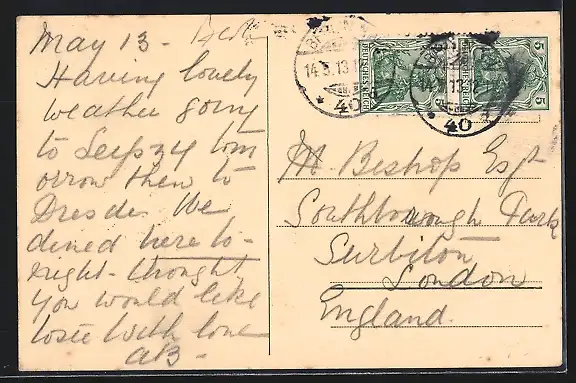 May 13 -
Having lovely
weather going
to Leipzig tom
orrow then to
Dresde. We
dined here to-
night - thought
you would like
to see with love
AB -
14.5.13
* 40
DEUTSCHES REICH
5
DEUTSCHES REICH
5
5
* 40
M. Bishop Esqr
Southborough Park
Surbiton
London
England.